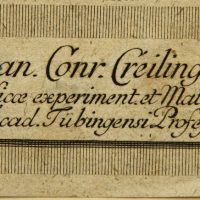 an. Conr. Creiling
ficæ experiment. et Mat
cad. Tübingensi Profe